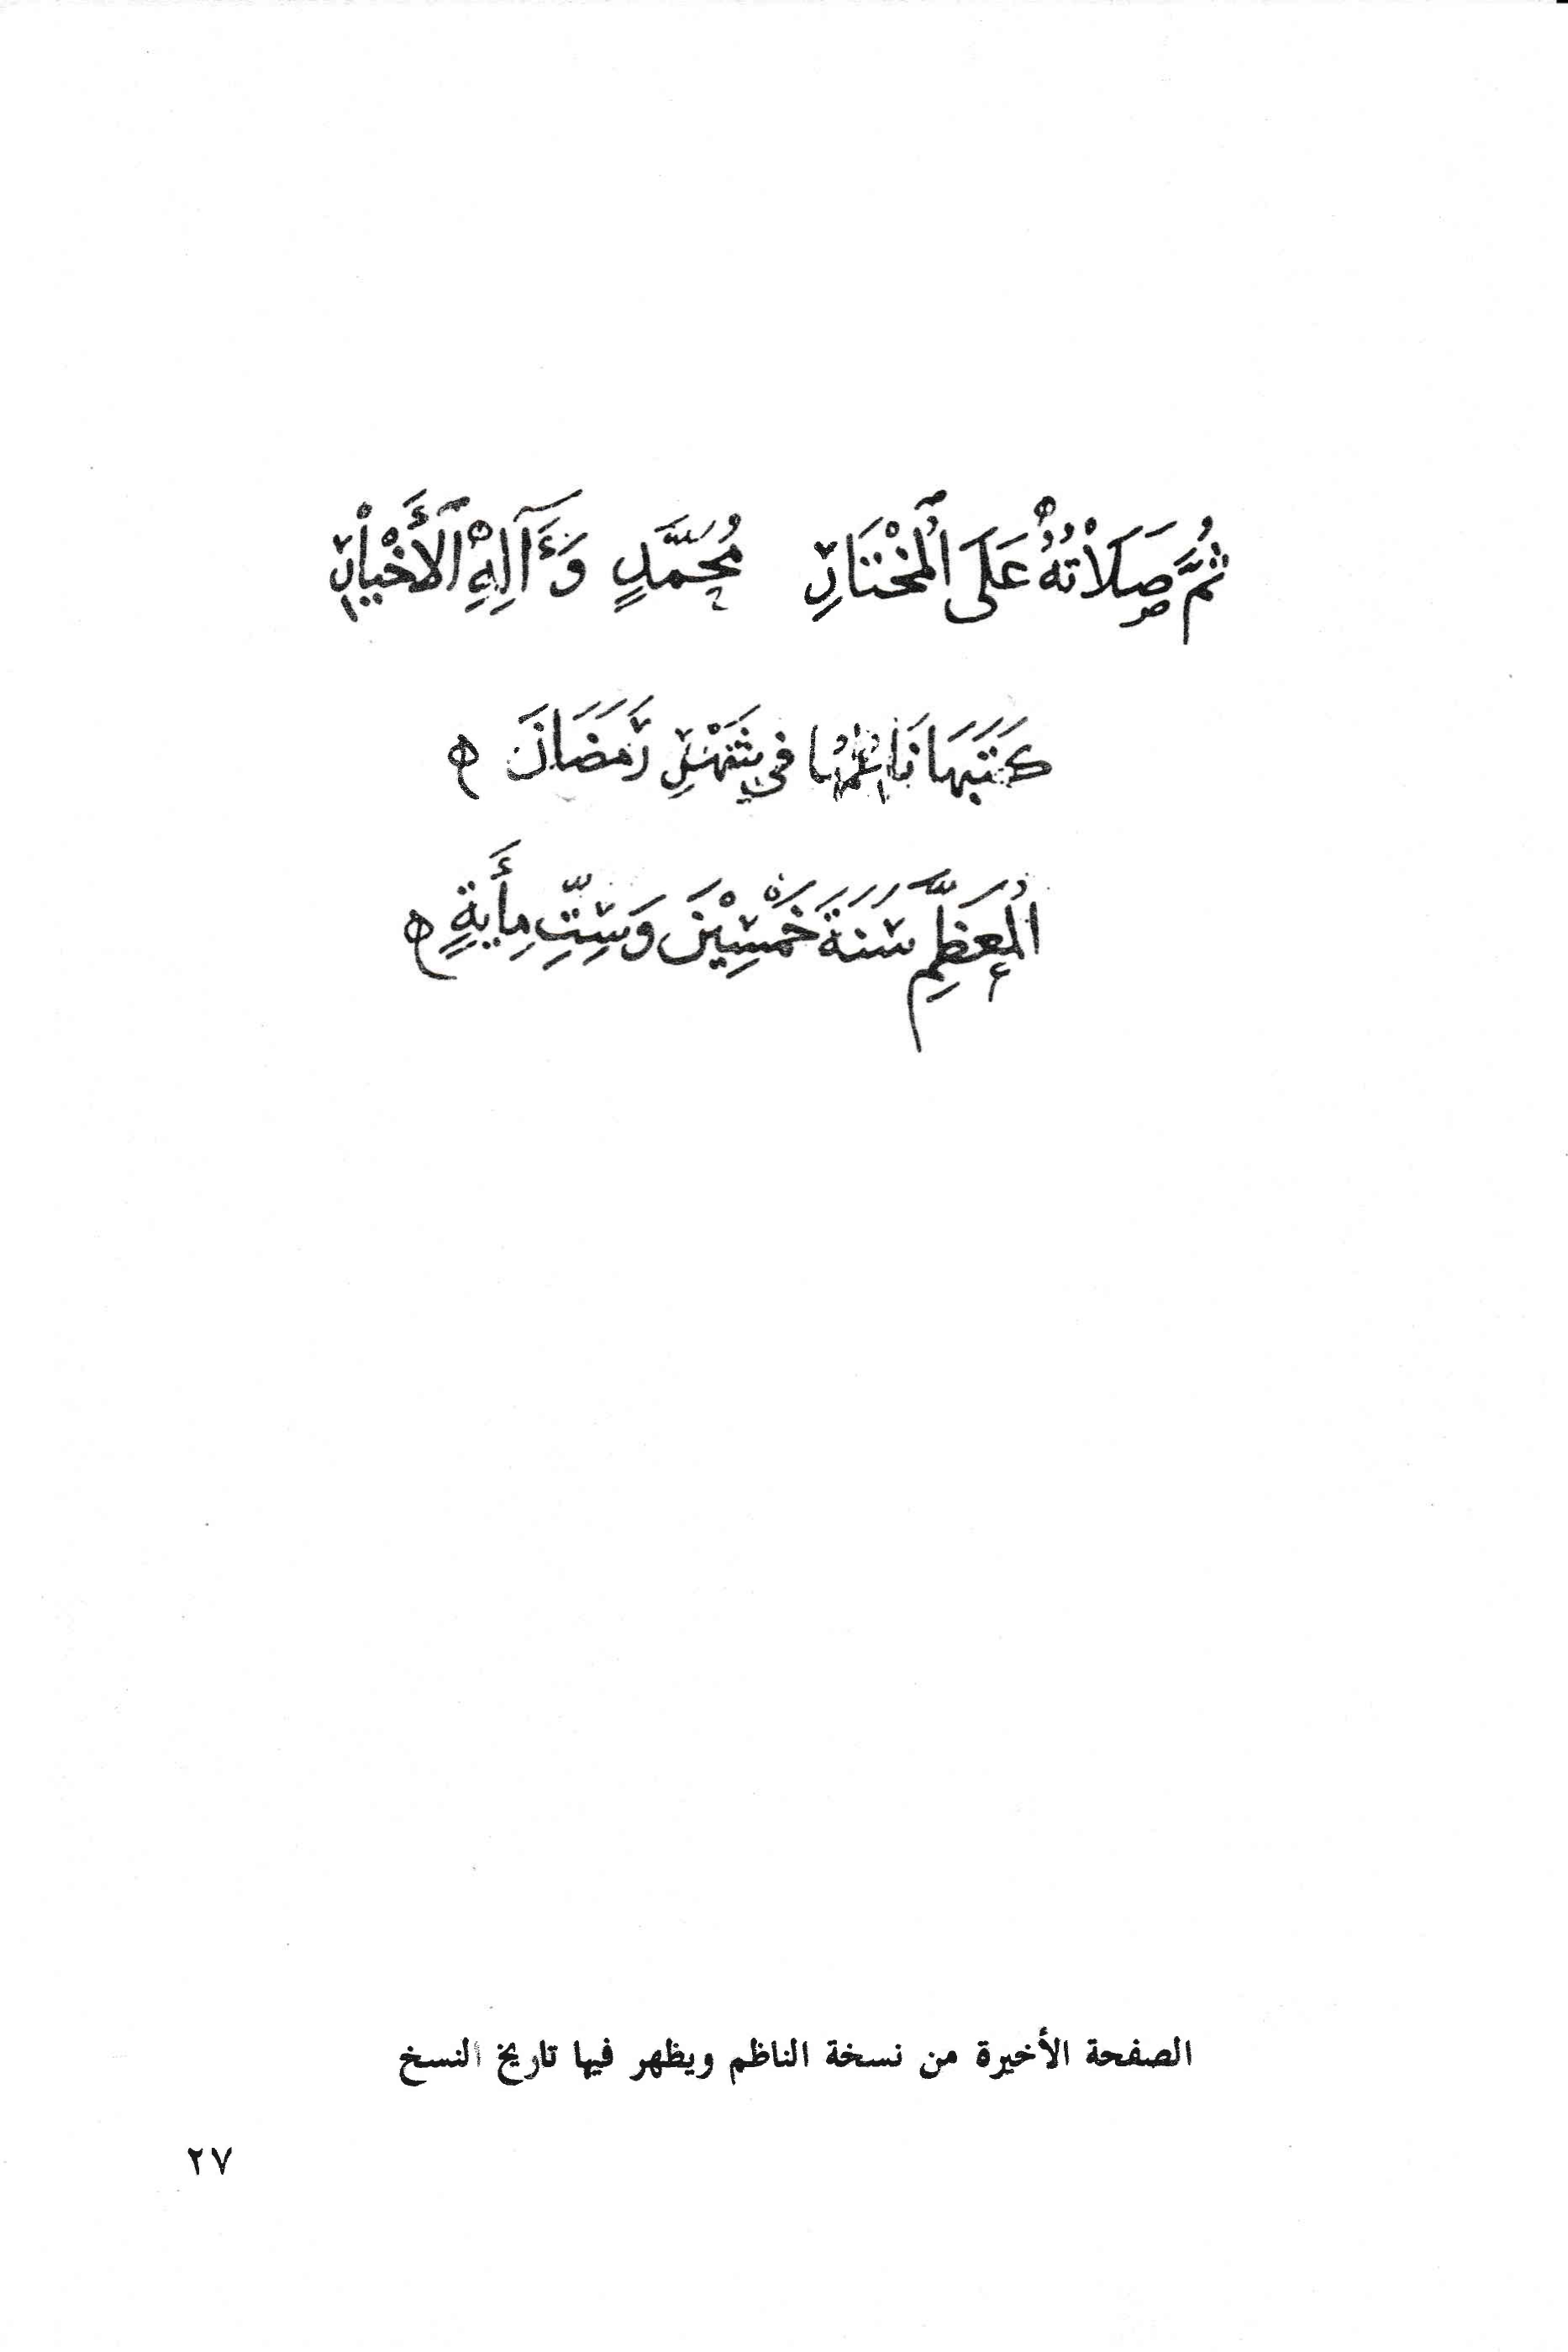 ثُمَّ صَلَاتُهُ عَلَى ٱلْمُخْتَارِ مُحَمَّدٍ وَءَآلِهِ ٱلْأَخْيَارِ
كَتَبَهَا نَاظِمُهَا فِي شَهْرِ رَمَضَانَ ه
الْمُعَظَّمِ سَنَةَ خَمْسِيْنَ وَسِتِّ مِأَيةٍ ه
الصفحة الأخيرة من نسخة الناظم ويظهر فيها تاريخ النسخ
٢٧